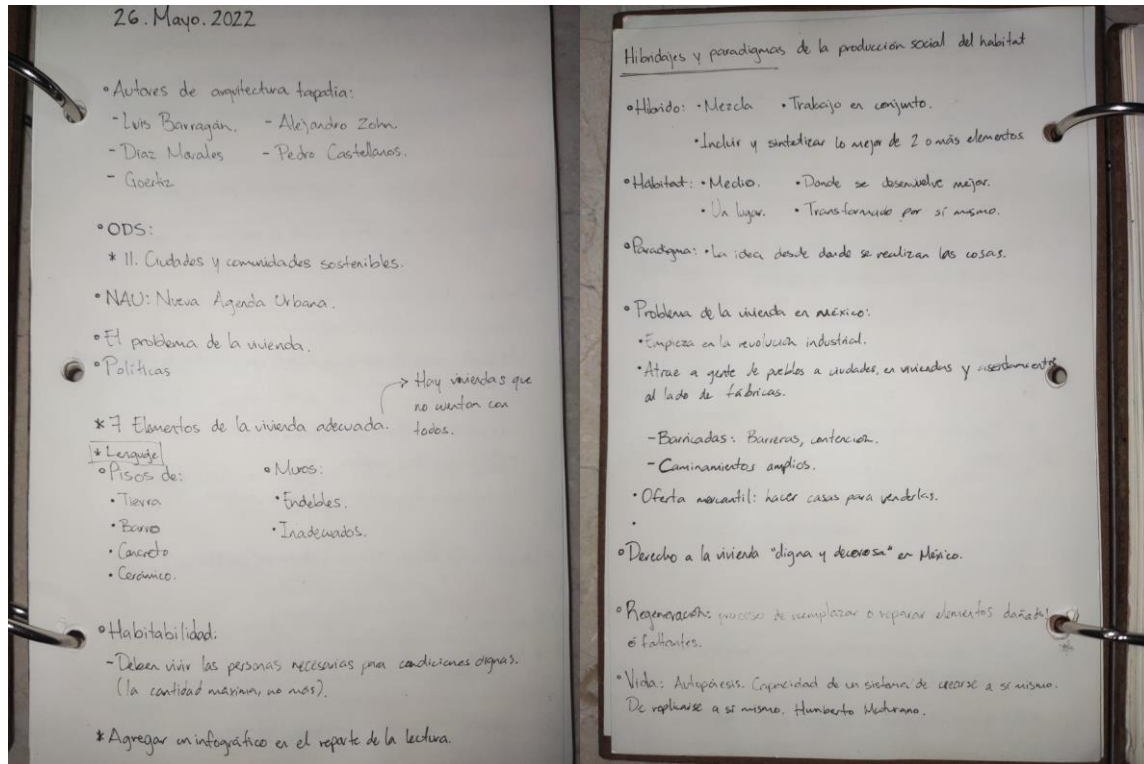 26. Mayo. 2022
• Autores de arquitectura tapatia:
- Luis Barragán. - Alejandro Zohn.
- Díaz Morales - Pedro Castellanos.
- Goeritz
• ODS:
* 11. Ciudades y comunidades sostenibles.
• NAU: Nueva Agenda Urbana.
• El problema de la vivienda.
• Políticas
* 7 Elementos de la vivienda adecuada. → Hay viviendas que
no cuentan con
todos.
* Lenguaje
• Pisos de: • Muros:
• Tierra • Endebles.
• Barro • Inadecuados.
• Concreto
• Cerámico.
• Habitabilidad:
- Deben vivir las personas necesarias para condiciones dignas.
(la cantidad máxima, no más).
* Agregar un infográfico en el reporte de la lectura.
Hibridajes y paradigmas de la producción social del habitat
• Híbrido: • Mezcla • Trabajo en conjunto.
• Incluir y sintetizar lo mejor de 2 o más elementos
• Hábitat: • Medio. • Donde se desenvuelve mejor.
• Un lugar. • Transformado por sí mismo.
• Paradigma: • La idea desde donde se realizan las cosas.
• Problema de la vivienda en México:
• Empieza en la revolución industrial.
• Atrae a gente de pueblos a ciudades, en viviendas y asentamientos
al lado de fábricas.
- Barricadas: Barreras, contención.
- Caminamientos amplios.
• Oferta mercantil: hacer casas para venderlas.
•
• Derecho a la vivienda "digna y decorosa" en México.
• Regeneración: proceso de reemplazar o reparar elementos dañados
o faltantes.
• Vida: Autopóiesis. Capacidad de un sistema de crearse a sí mismo.
De replicarse a sí mismo. Humberto Maturano.